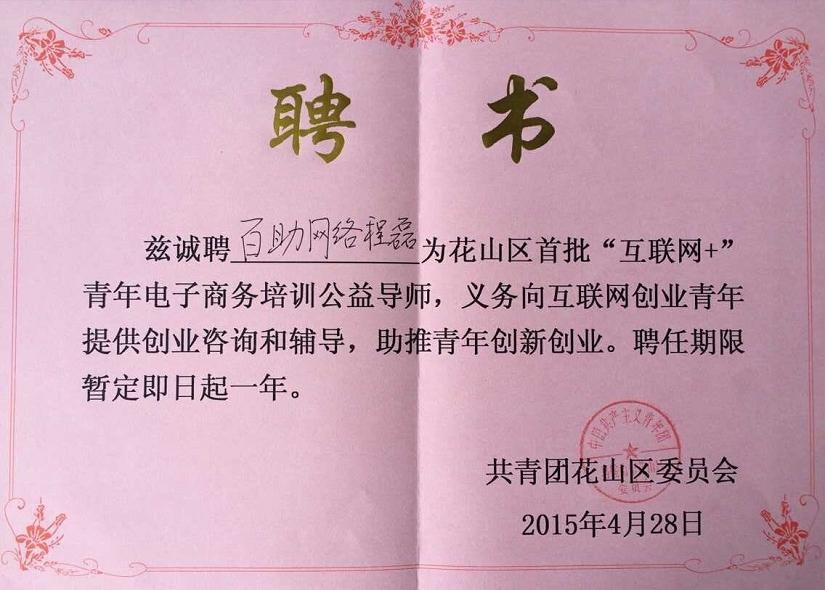 聘书
兹诚聘百助网络程磊为花山区首批“互联网+”
青年电子商务培训公益导师，义务向互联网创业青年
提供创业咨询和辅导，助推青年创新创业。聘任期限
暂定即日起一年。
中国共产主义青年团
共青团花山区委员会
委员会
2015年4月28日